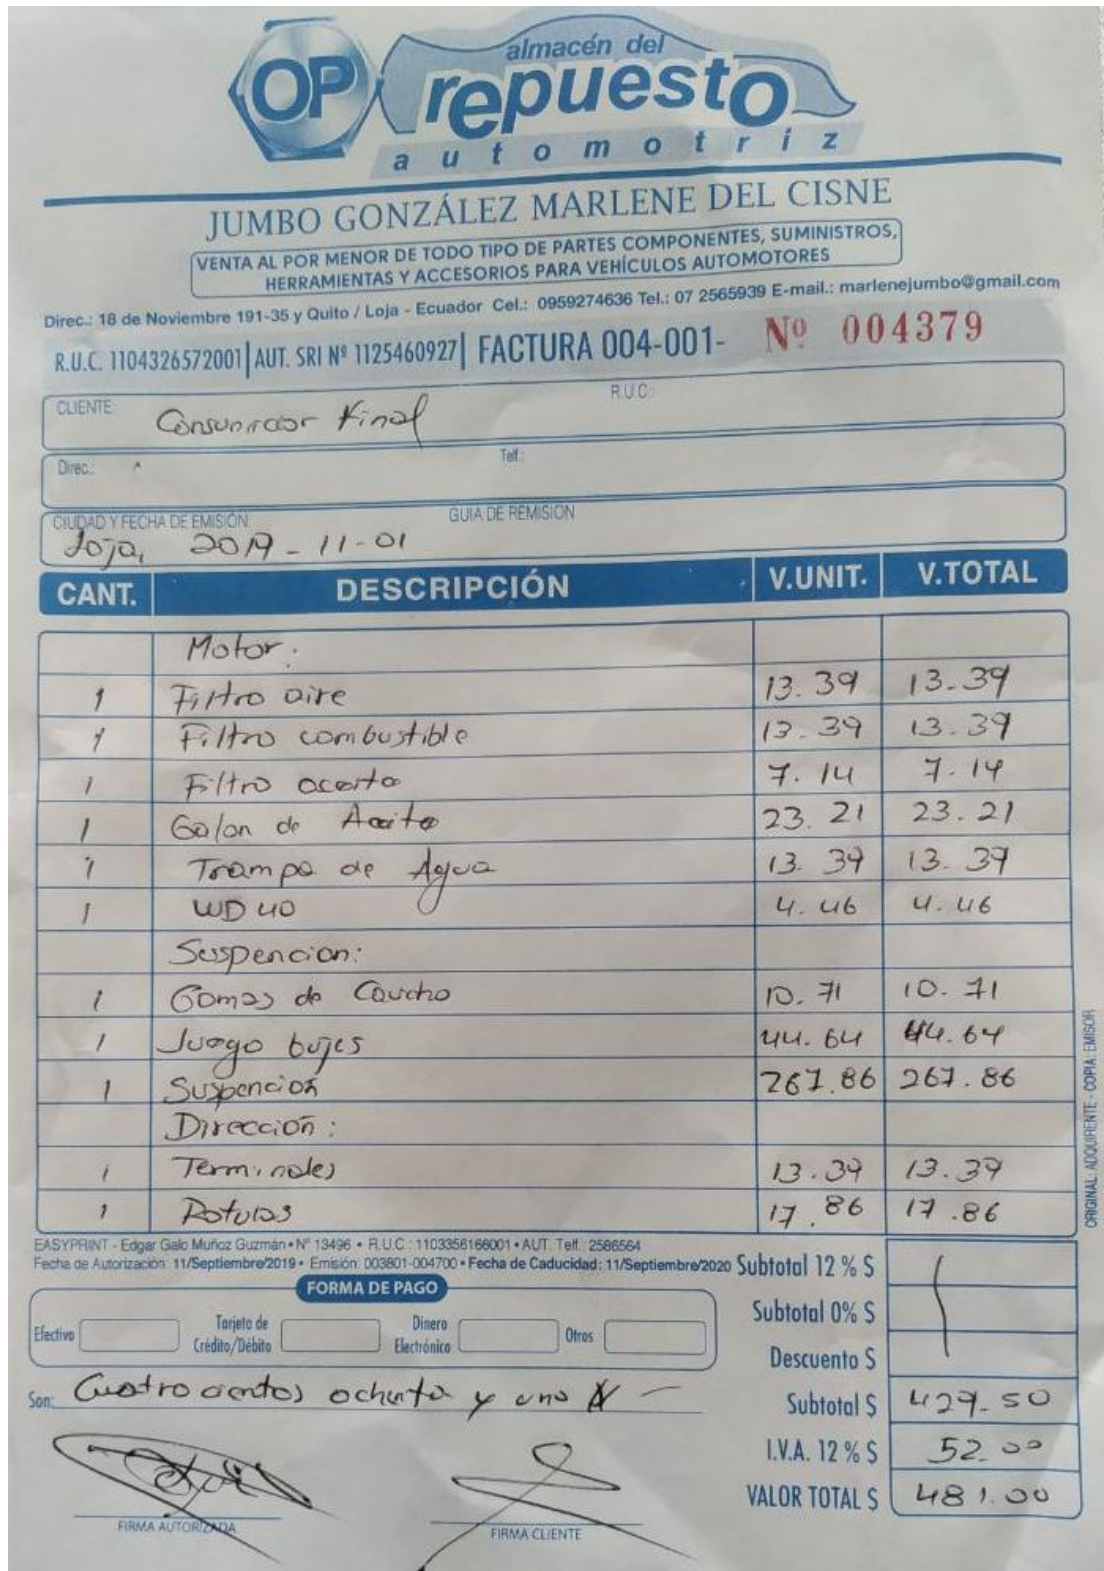 OP almacén del
repuesto
automotriz
JUMBO GONZÁLEZ MARLENE DEL CISNE
VENTA AL POR MENOR DE TODO TIPO DE PARTES COMPONENTES, SUMINISTROS,
HERRAMIENTAS Y ACCESORIOS PARA VEHÍCULOS AUTOMOTORES
Direc.: 18 de Noviembre 191-35 y Quito / Loja - Ecuador Cel.: 0959274636 Tel.: 07 2565939 E-mail.: marlenejumbo@gmail.com
R.U.C. 1104326572001 AUT. SRI Nº 1125460927 FACTURA 004-001- Nº 004379
CLIENTE: Consumidor Final R.U.C.:
Direc.: Telf.:
CIUDAD Y FECHA DE EMISIÓN GUIA DE REMISIÓN
Loja, 2019-11-01
CANT. DESCRIPCIÓN V.UNIT. V.TOTAL
Motor:
1 Filtro aire 13.39 13.39
1 Filtro combustible 13.39 13.39
1 Filtro aceite 7.14 7.14
1 Galon de Aceite 23.21 23.21
1 Trampa de Agua 13.39 13.39
1 WD 40 4.46 4.46
Suspencion:
1 Gomas de Caucho 10.71 10.71
1 Juego bujes 44.64 44.64
1 Suspención 267.86 267.86
Dirección:
1 Terminales 13.39 13.39
1 Rotulas 17.86 17.86
ORIGINAL: ADQUIRENTE - COPIA: EMISOR
EASYPRINT - Edgar Galo Muñoz Guzmán • Nº 13496 • R.U.C.: 1103356166001 • AUT. Telf.: 2586564
Fecha de Autorización: 11/Septiembre/2019 • Emisión: 003801-004700 • Fecha de Caducidad: 11/Septiembre/2020
Subtotal 12 % $
FORMA DE PAGO
Subtotal 0% $
Efectivo Tarjeta de Crédito/Débito Dinero Electrónico Otros
Descuento $
Son: Cuatro cientos ochenta y uno
Subtotal $ 429.50
I.V.A. 12 % $ 52.00
VALOR TOTAL $ 481.00
FIRMA AUTORIZADA FIRMA CLIENTE